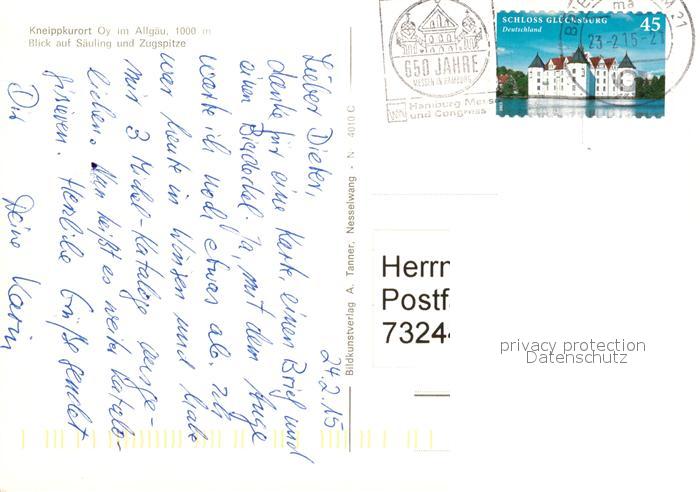 Kneippkurort Oy im Allgäu, 1000 m
Blick auf Säuling und Zugspitze
24.2.15
Lieber Dieter,
danke für eine Karte, einen Brief und
einen Bierdeckel. Ja, mit dem Auge
warte ich noch etwas ab. Ich
war heute in Winsen und habe
mir 3 Michel-Kataloge ausge-
liehen. Nun heißt es weiter katalo-
gisieren. Herzliche Grüße sendet
Dir Deine Karin
Bildkunstverlag A. Tanner, Nesselwang · N 4010 C
650 JAHRE
MESSEN IN HAMBURG
Hamburg Messe
und Congress
SCHLOSS GLÜCKSBURG 45
Deutschland
BRIEFZENTRUM 21
23-2.15-21
ma
Herrn
Postfa
7324
privacy protection
Datenschutz